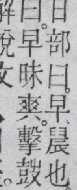 日部曰。早、晨也
曰。早昧爽。擊鼓